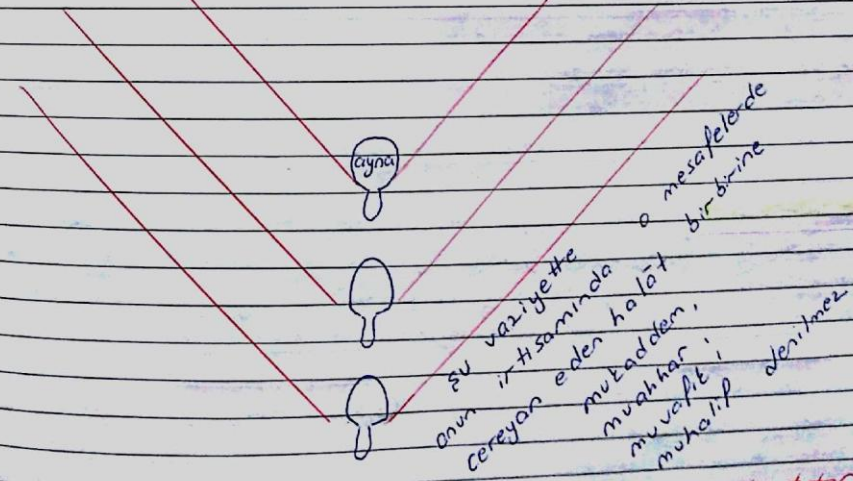 ayna
şu vaziyette
onun irtisamında o mesafelerde
cereyan eden halât birbirine
mukaddem,
muahhar;
muvafık;
muhalif denilmez